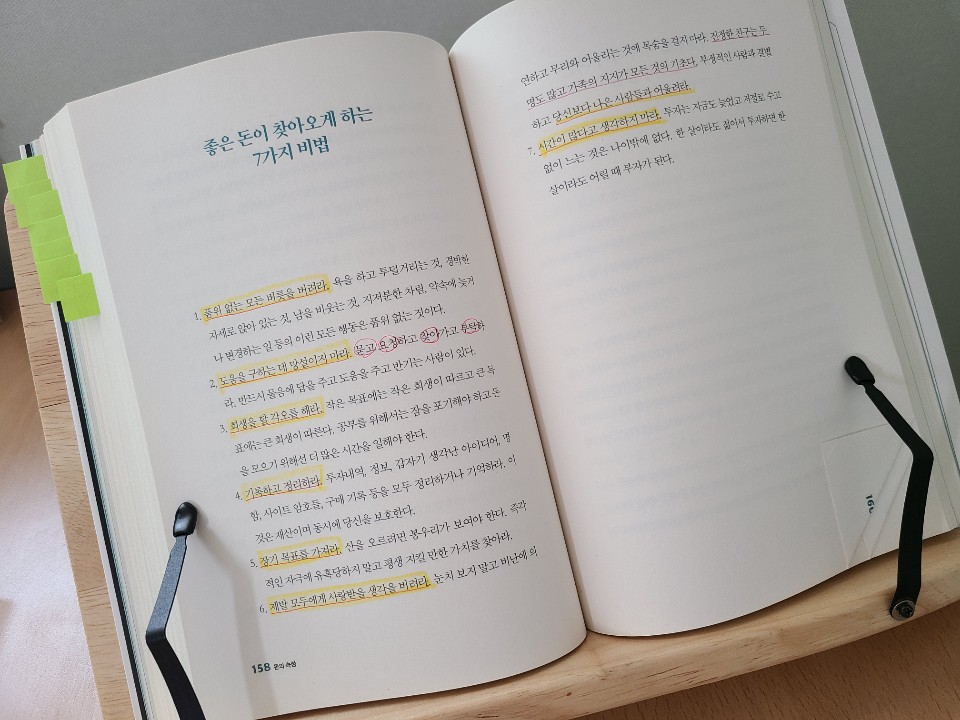 좋은 돈이 찾아오게 하는
7가지 비법
1. 품위 없는 모든 버릇을 버려라. 욕을 하고 투덜거리는 것, 경박한
자세로 앉아 있는 것, 남을 비웃는 것, 지저분한 차림, 약속에 늦거
나 변경하는 일 등의 이런 모든 행동은 품위 없는 짓이다.
2. 도움을 구하는 데 망설이지 마라. 묻고 요청하고 찾아가고 부탁하
라. 반드시 물음에 답을 주고 도움을 주고 반기는 사람이 있다.
3. 희생을 할 각오를 해라. 작은 목표에는 작은 희생이 따르고 큰 목
표에는 큰 희생이 따른다. 공부를 위해서는 잠을 포기해야 하고 돈
을 모으기 위해선 더 많은 시간을 일해야 한다.
4. 기록하고 정리하라. 투자내역, 정보, 갑자기 생각난 아이디어, 명
함, 사이트 암호들, 구매 기록 등을 모두 정리하거나 기억하라. 이
것은 재산이며 동시에 당신을 보호한다.
5. 장기 목표를 가져라. 산을 오르려면 봉우리가 보여야 한다. 즉각
적인 자극에 유혹당하지 말고 평생 지킬 만한 가치를 찾아라.
6. 제발 모두에게 사랑받을 생각을 버려라. 눈치 보지 말고 비난에 의
158 돈의 속성
연하고 무리와 어울리는 것에 목숨을 걸지 마라. 진정한 친구는 두
명도 많고 가족의 지지가 모든 것의 기초다. 부정적인 사람과 결별
하고 당신보다 나은 사람들과 어울려라.
7. 시간이 많다고 생각하지 마라. 투자는 지금도 늦었고 저절로 수고
없이 느는 것은 나이밖에 없다. 한 살이라도 젊어서 투자하면 한
살이라도 어릴 때 부자가 된다.